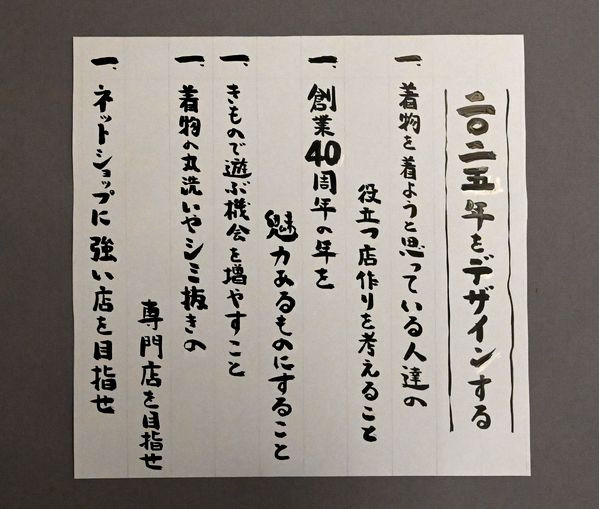 二〇二五年をデザインする
一、着物を着ようと思っている人達の
役立つ店作りを考えること
一、創業40周年の年を
魅力あるものにすること
一、きもので遊ぶ機会を増やすこと
一、着物の丸洗いやシミ抜きの
専門店を目指せ
一、ネットショップに強い店を目指せ